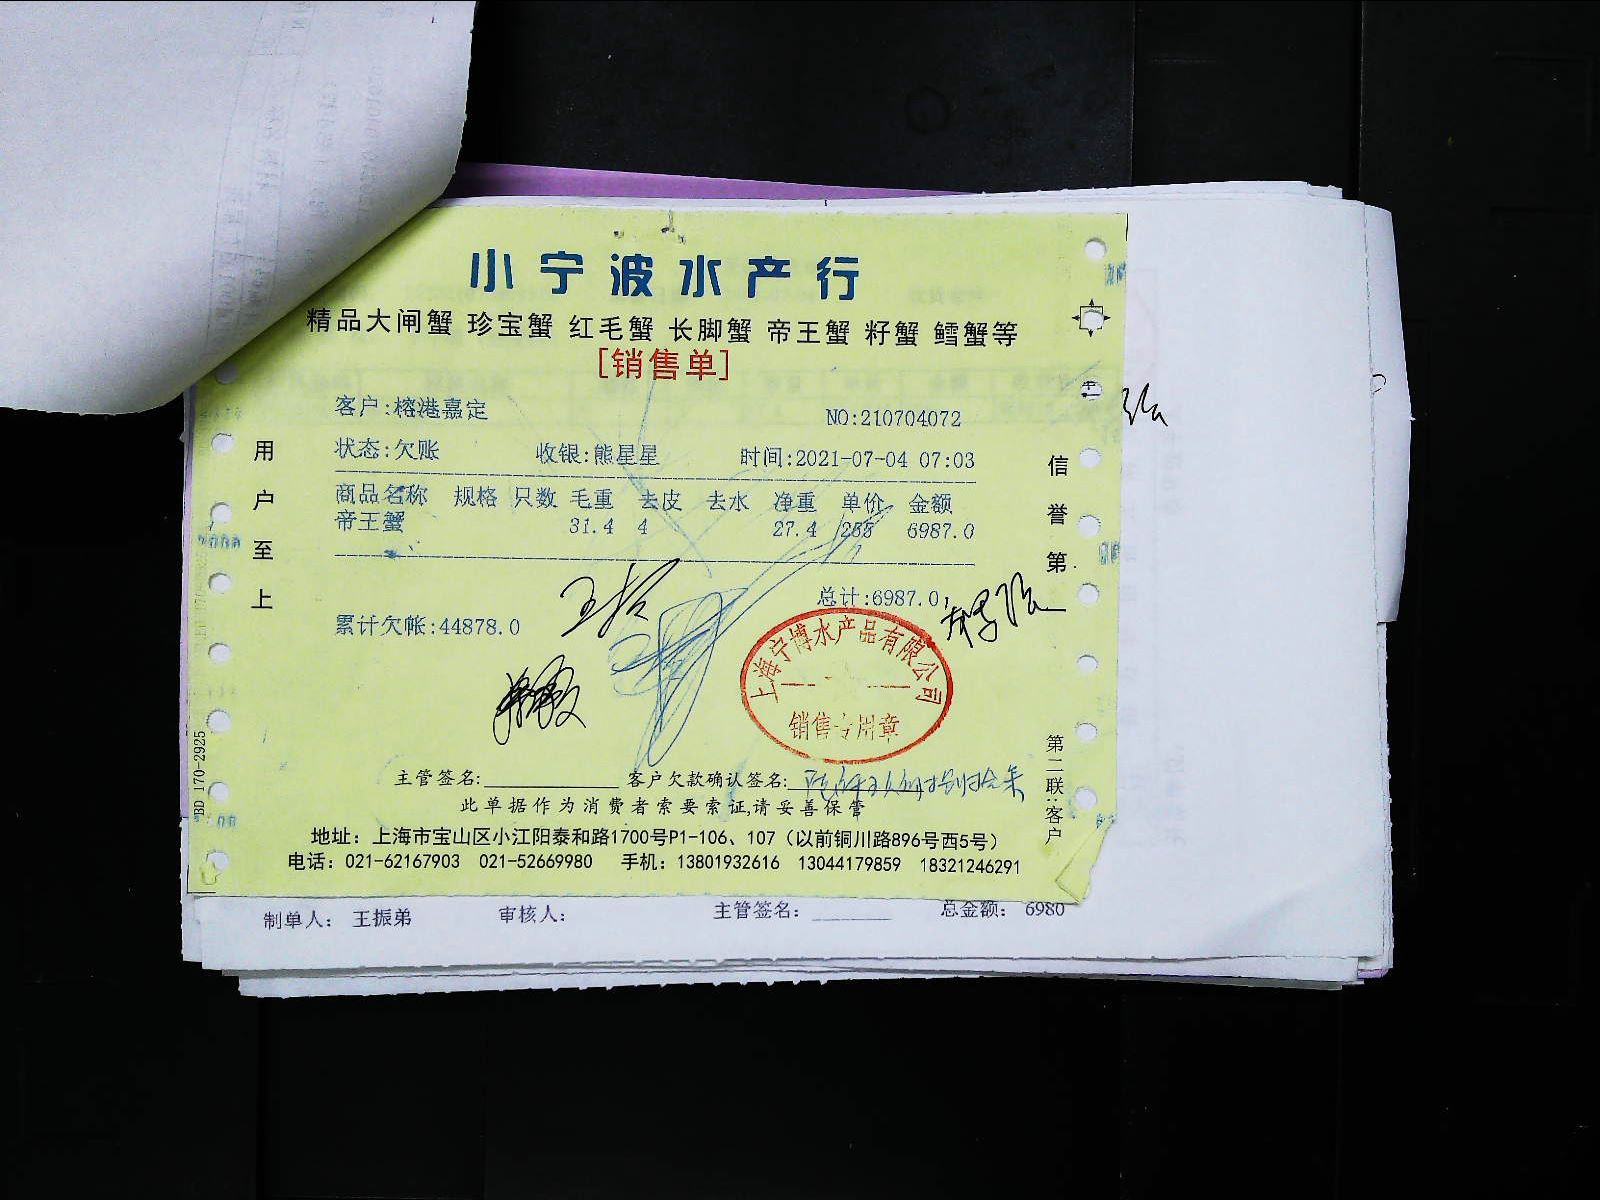 小宁波水产行
精品大闸蟹 珍宝蟹 红毛蟹 长脚蟹 帝王蟹 籽蟹 鳕蟹等
[销售单]
客户:榕港嘉定 NO:210704072
状态:欠账 收银:熊星星 时间:2021-07-04 07:03
商品名称 规格 只数 毛重 去皮 去水 净重 单价 金额
帝王蟹 31.4 4 27.4 255 6987.0
总计:6987.0
累计欠帐:44878.0
用户至上
信誉第一
上海宁博水产品有限公司
销售专用章
主管签名: 客户欠款确认签名:
此单据作为消费者索要索证,请妥善保管
地址：上海市宝山区小江阳泰和路1700号P1-106、107（以前铜川路896号西5号）
电话：021-62167903 021-52669980 手机：13801932616 13044179859 18321246291
第二联:客户
BD 170-2925
制单人： 王振弟 审核人： 主管签名： 总金额： 6980